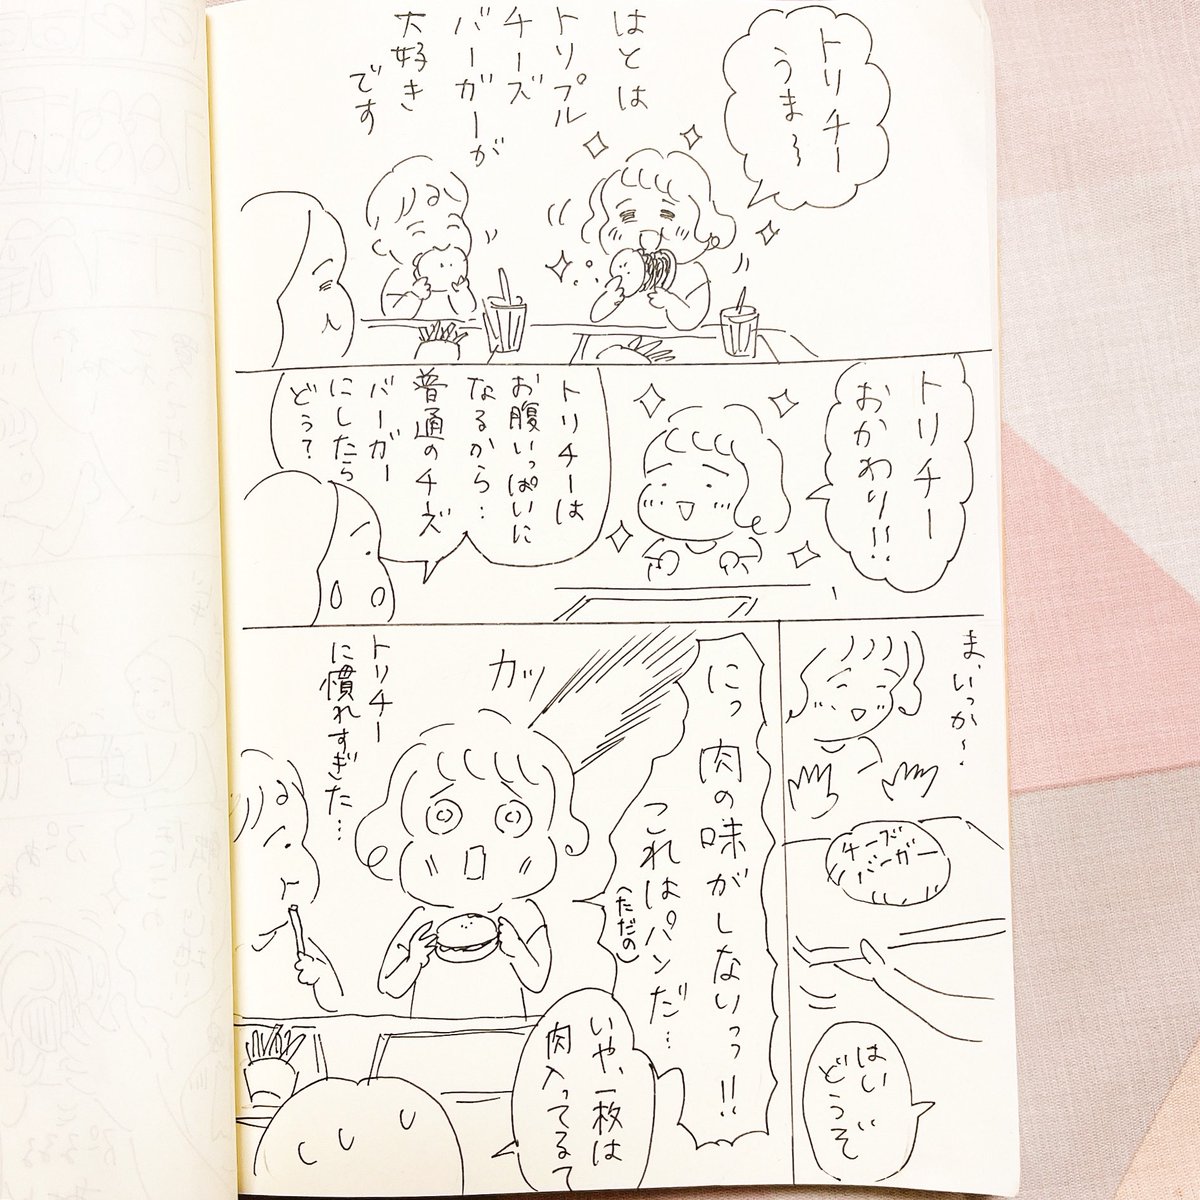 トリチー
うま~
はとは
トリプル
チーズ
バーガーが
大好き
です
トリチー
おかわり!!
トリチーは
お腹いっぱいに
なるから…
普通のチーズ
バーガー
にしたら
どう?
ま、いっか~
チーズ
バーガー
はい
どうぞ
にっ 肉の味がしないっっ!!
これはパンだ…
(ただの)
カッ
トリチー
に慣れすぎた…
いや、一枚は
肉入ってるて